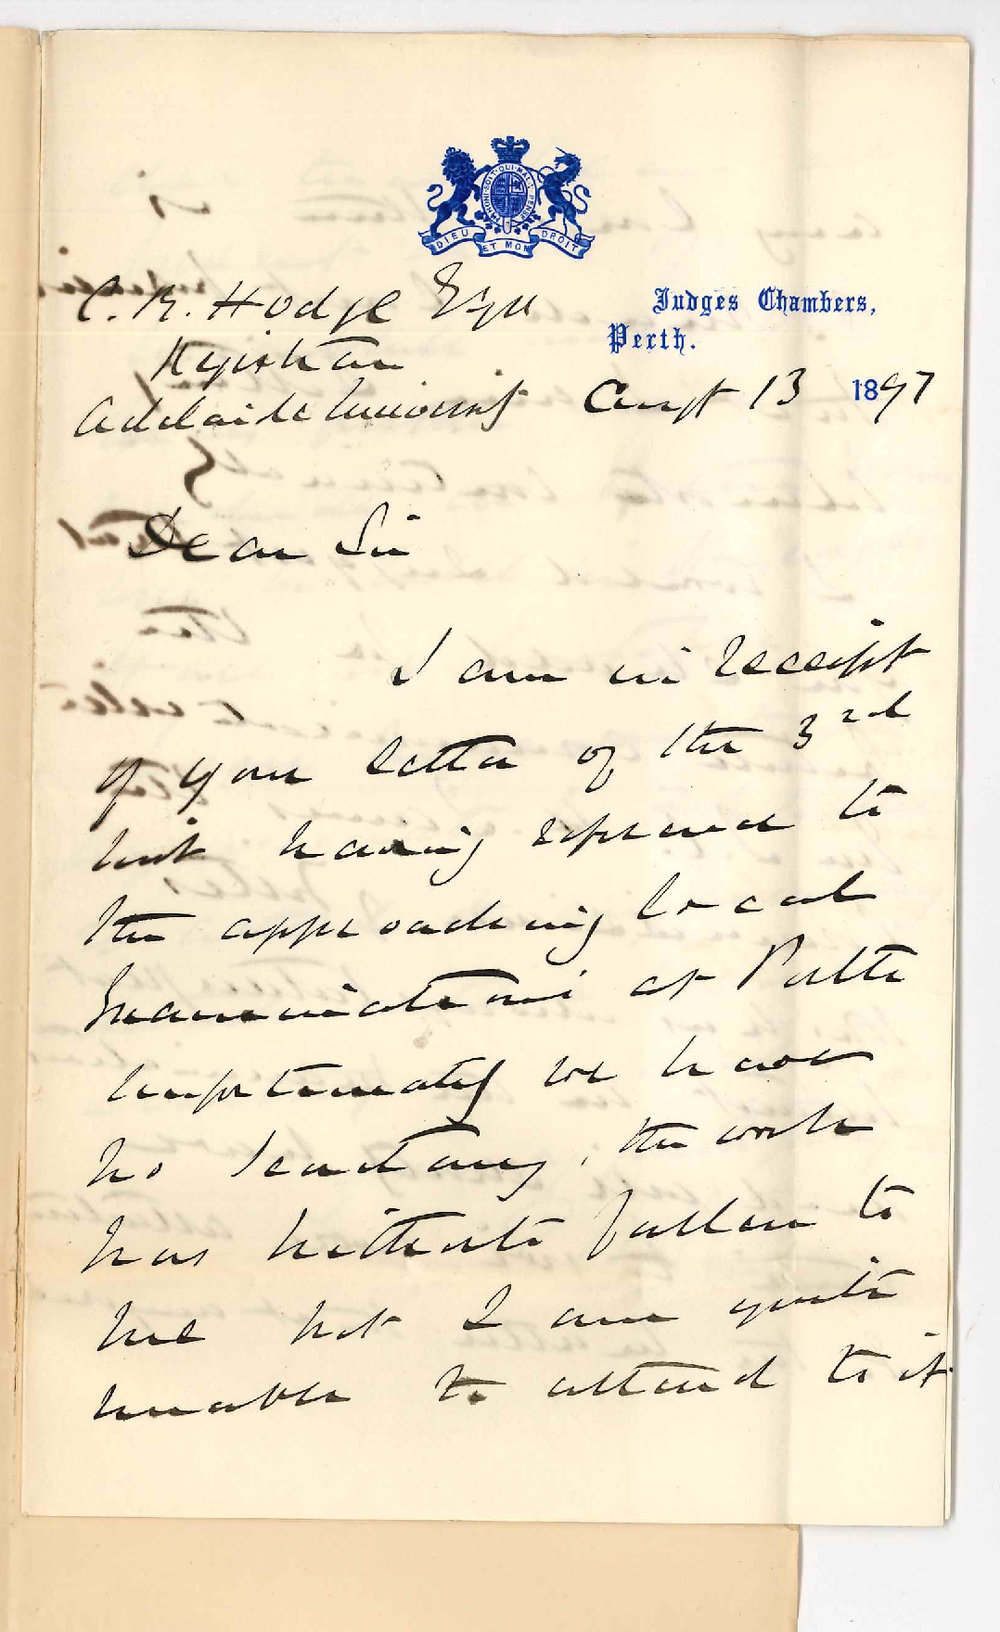 HONI·SOIT·QUI·MAL·Y·PENSE
DIEU ET MON DROIT
Judges Chambers,
Perth.
C. R. Hodge Esqr
Registrar
Adelaide University
Augst 13 1897
Dear Sir
I am in receipt
of your letter of the 3rd
inst having reference to
the approaching local
Examinations at Perth
unfortunately we have
no Secretary, the work
has hitherto fallen to
me but I am quite
unable to attend to it